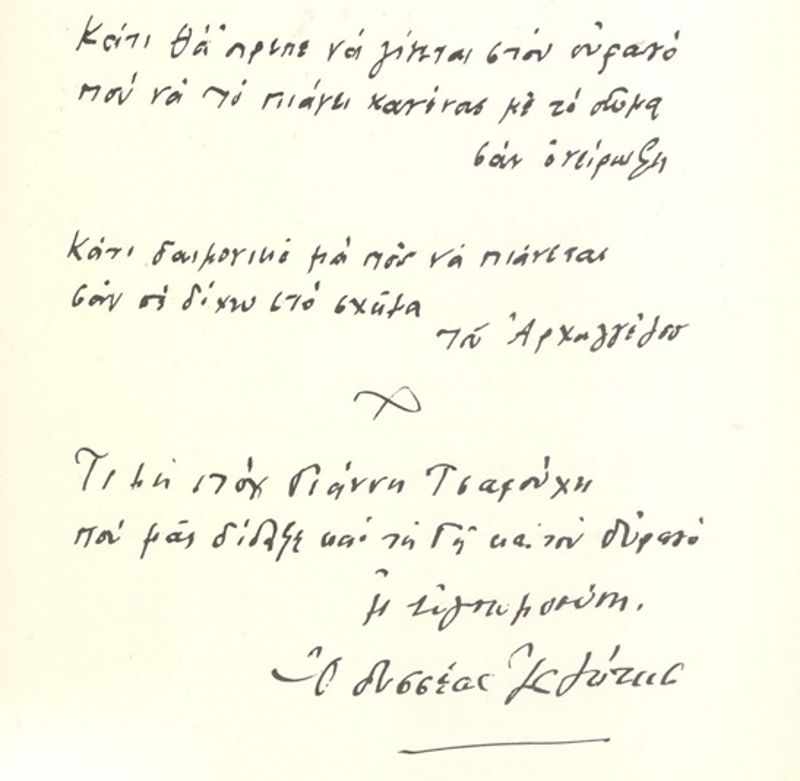 Κάτι θά 'πρεπε νά γίνεται στόν οὐρανό
πού νά τό πιάνει κανένας μέ τό σῶμα
σάν ὀνείρωξη
Κάτι δαιμονικό μά πού νά πιάνεται
σάν σέ δίχτυ στό σχῆμα
τοῦ Ἀρχαγγέλου
Τιμή στόν Γιάννη Τσαρούχη
πού μᾶς δίδαξε καί τή Γῆ καί τόν Οὐρανό
μέ εὐγνωμοσύνη.
Ὀδυσσέας Ἐλύτης